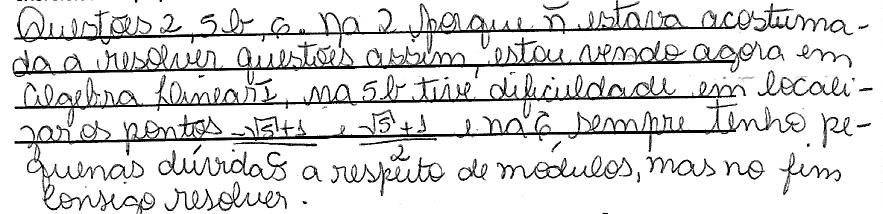 Questões 2, 5b, 6. Na 2 porque ñ estava acostuma-
da a resolver questões assim, estou vendo agora em
Álgebra Linear I, na 5b tive dificuldade em locali-
zar os pontos -√5+1 e √5+1/2 e na 6 sempre tenho pe-
quenas dúvidas a respeito de módulos, mas no fim
consigo resolver.